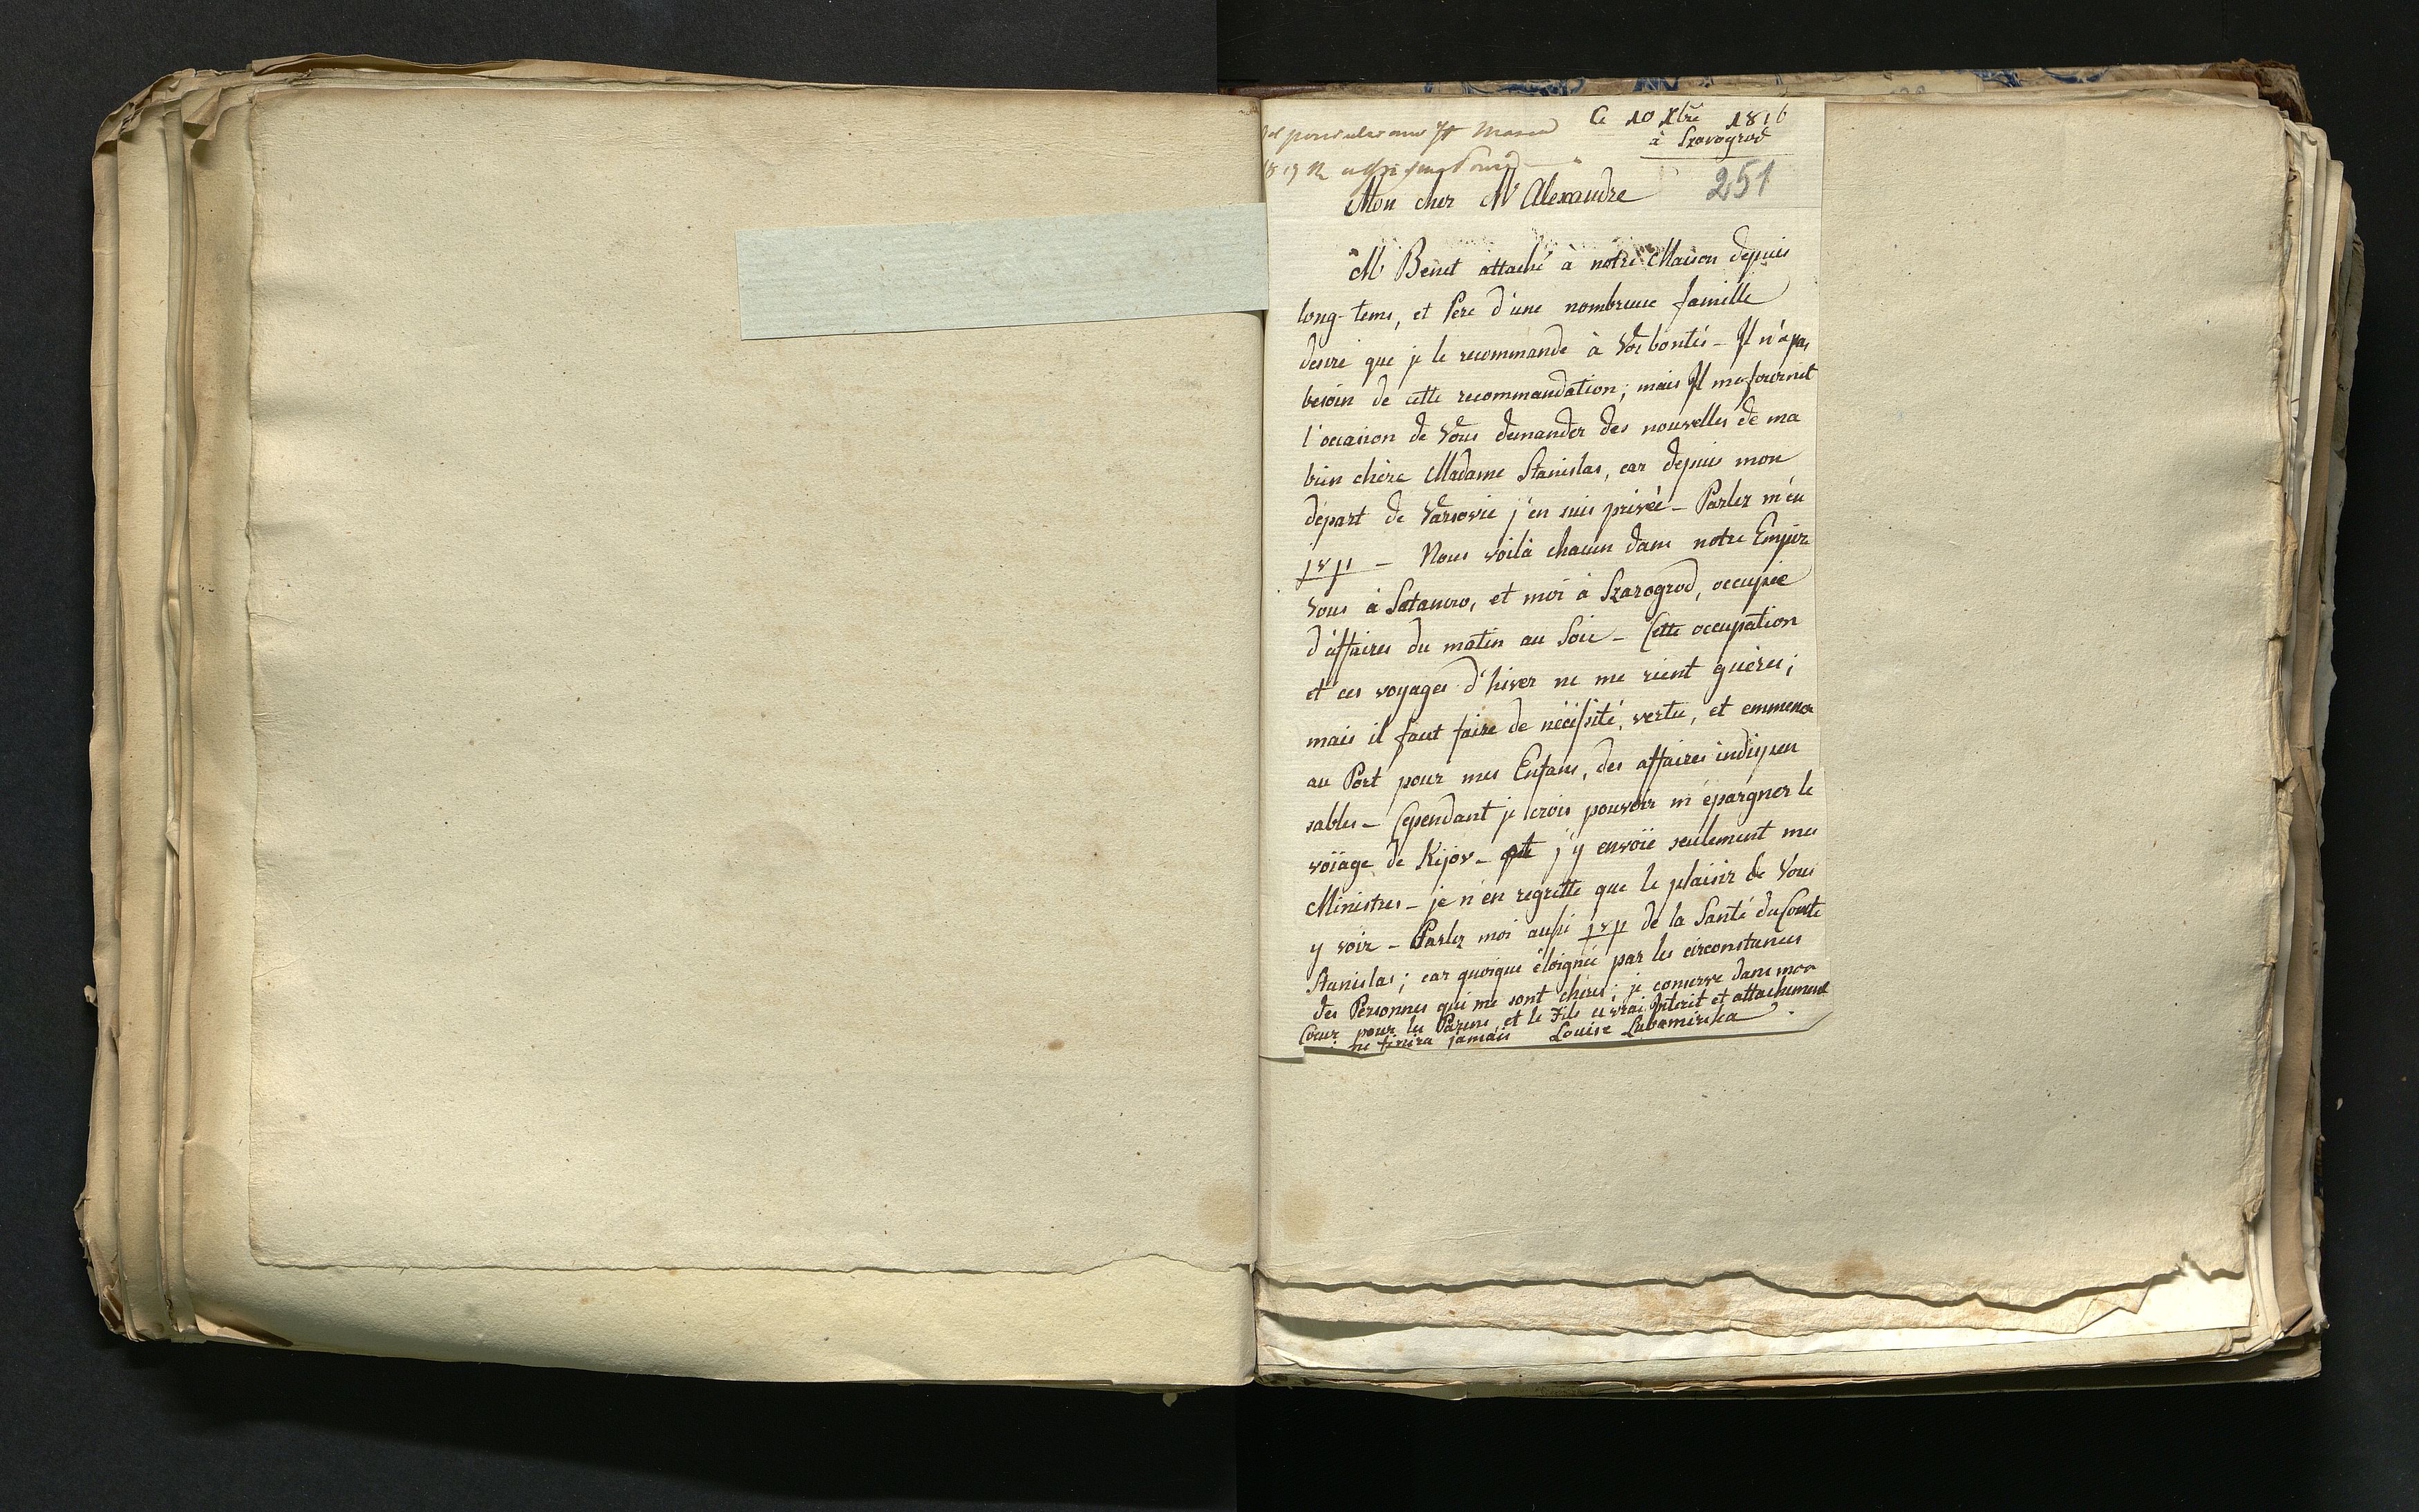 Ce 10 Xbre 1816
à Szarogrod
251
Mon cher Mr Alexandre
Mr Benet attaché à notre Maison depuis
long-tems, et Pere d'une nombreuse famille
desire que je le recommande à Vos bontés - Il n'a pas
besoin de cette recommandation; mais Il me fournit
l'occasion de Vous demander des nouvelles de ma
bien chère Madame Stanislas, car depuis mon
départ de Varsovie j'en suis privée - Parlez m'en
jvp - Nous voilà chacun dans notre Empire
Vous à Satanow, et moi à Szarogrod, occupée
d'affaires du matin au Soir - Cette occupation
et ces voyages d'hiver ne me rient guères;
mais il faut faire de nécessité, vertu, et emmener
au Port pour mes Enfans, des affaires indispen
sables - Cependant je crois pouvoir m'épargner le
voïage de Kijov - j'y envoïe seulement mes
Ministres - je n'en regrette que le plaisir de Vous
y voir - Parlez moi aussi jvp de la Santé du Comte
Stanislas; car quoique éloignée par les circonstances
des Personnes qui me sont chères; je conserve dans mon
Coeur pour les Parens, et le Fils ce vrai Interêt et attachement
ne finira jamais Louise Lubomirska